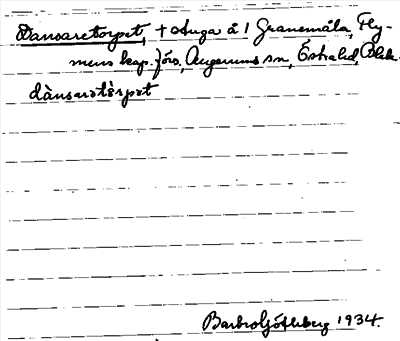 Dansaretorpet, + stuga å 1 Granemåla, Fly-
mens kap. förs, Augerums sn, Östra hd, Blek.
dànsarətòrpət
Barbro Götheberg 1934.